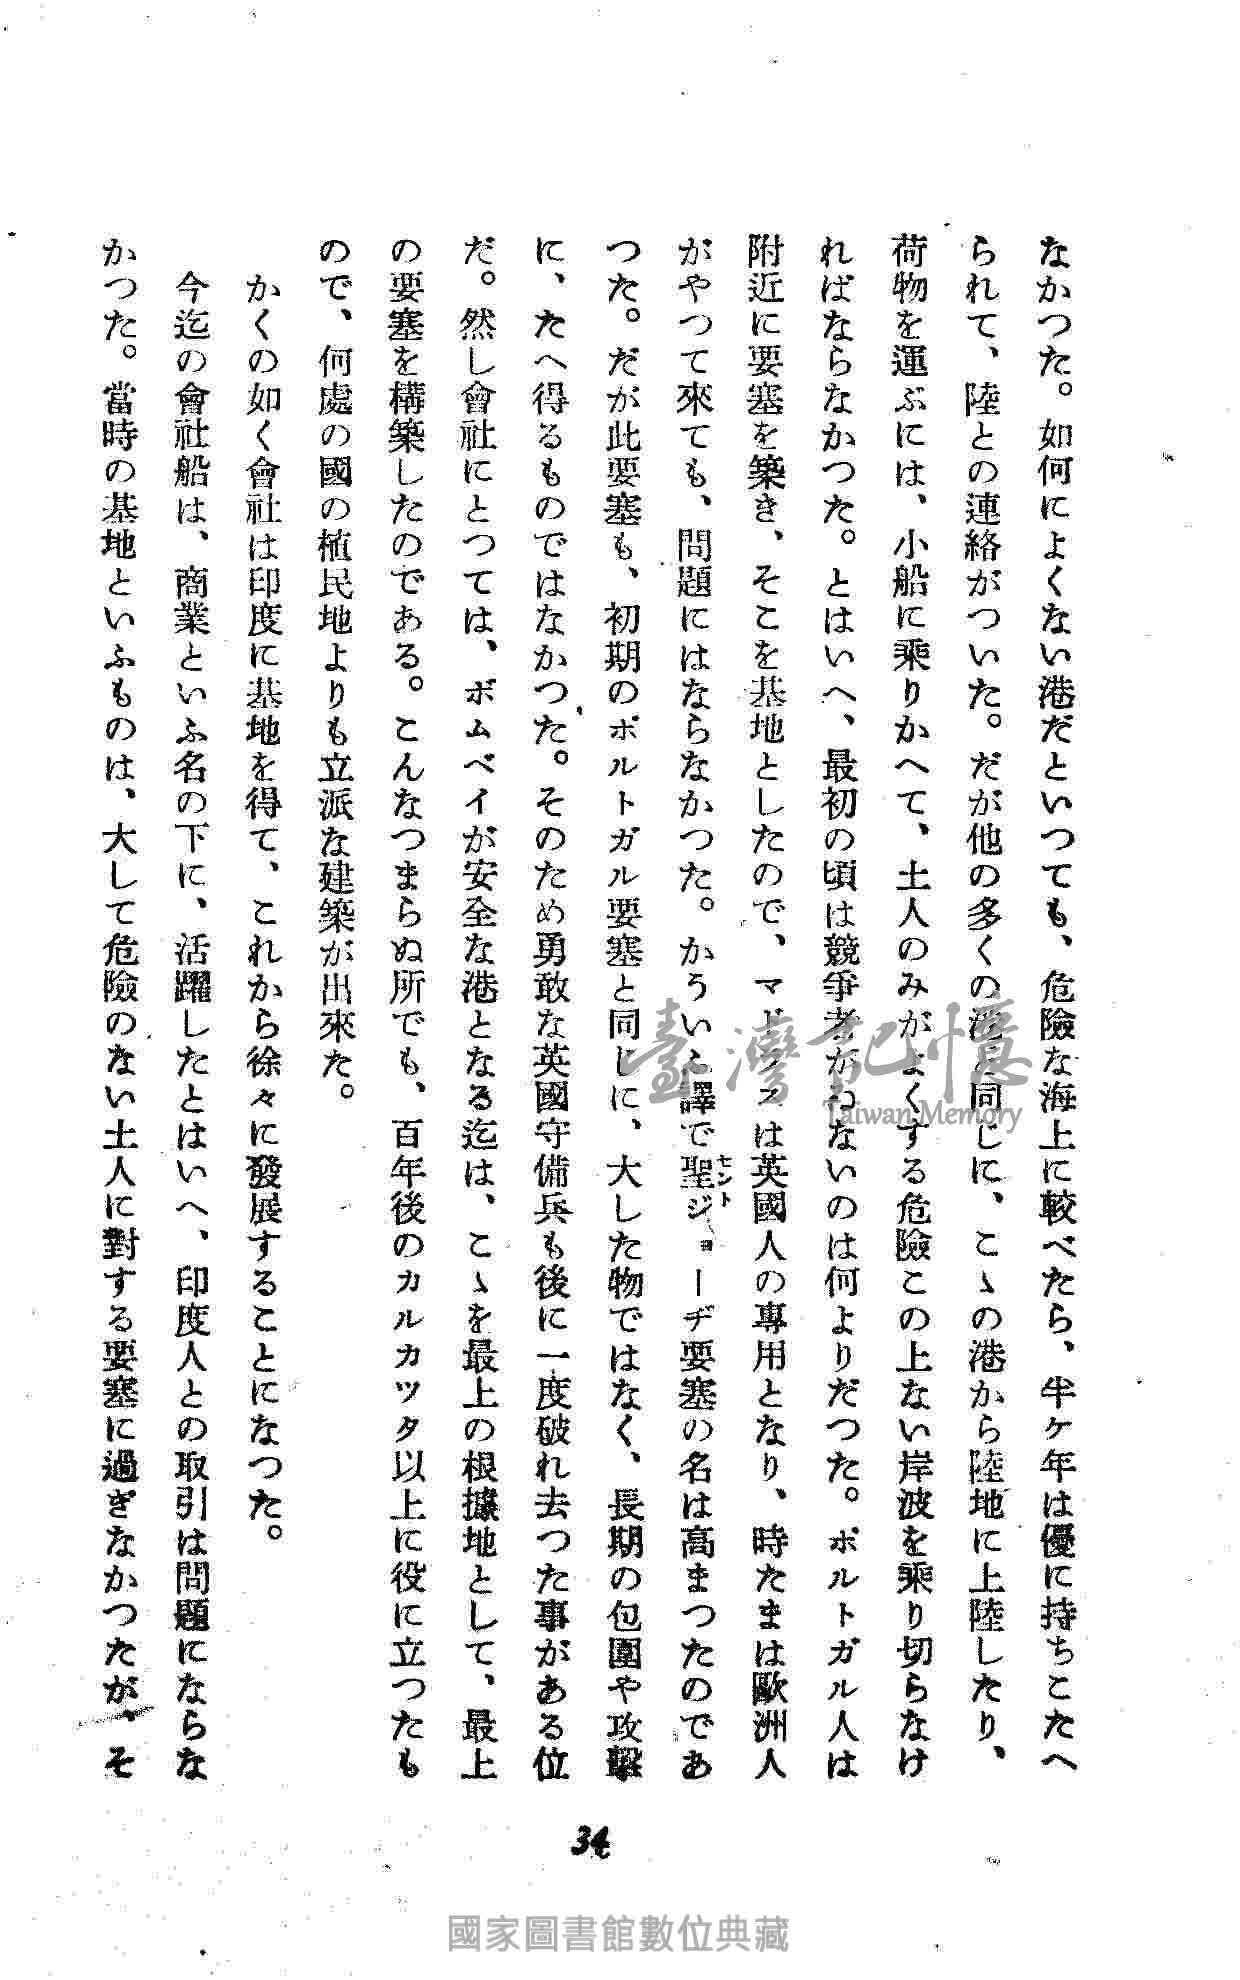 なかつた。如何によくない港だといつても、危險な海上に較べたら、半ケ年は優に持ちこたへ
られて、陸との連絡がついた。だが他の多くの港と同じに、こゝの港から陸地に上陸したり、
荷物を運ぶには、小船に乘りかへて、土人のみがよくする危險この上ない岸波を乘り切らなけ
ればならなかつた。とはいへ、最初の頃は競爭者がゐないのは何よりだつた。ポルトガル人は
附近に要塞を築き、そこを基地としたので、マドラスは英國人の專用となり、時たまは歐洲人
がやつて來ても、問題にはならなかつた。かういふ譯で聖ジョーヂ要塞の名は高まつたのであ
セント
つた。だが此要塞も、初期のポルトガル要塞と同じに、大した物ではなく、長期の包圍や攻擊
に、たへ得るものではなかつた。そのため勇敢な英國守備兵も後に一度破れ去つた事がある位
だ。然し會社にとつては、ボムベイが安全な港となる迄は、こゝを最上の根據地として、最上
の要塞を構築したのである。こんなつまらぬ所でも、百年後のカルカツタ以上に役に立つたも
ので、何處の國の植民地よりも立派な建築が出來た。
かくの如く會社は印度に基地を得て、これから徐々に發展することになつた。
今迄の會社船は、商業といふ名の下に、活躍したとはいへ、印度人との取引は問題にならな
かつた。當時の基地といふものは、大して危險のない土人に對する要塞に過ぎなかつたが、そ
34
臺灣記憶
Taiwan Memory
國家圖書館數位典藏